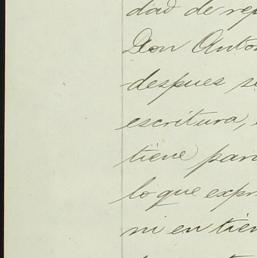 dad de rep
Don Anto
despues se
escritura,
tiene para
lo que expr
ni en tien